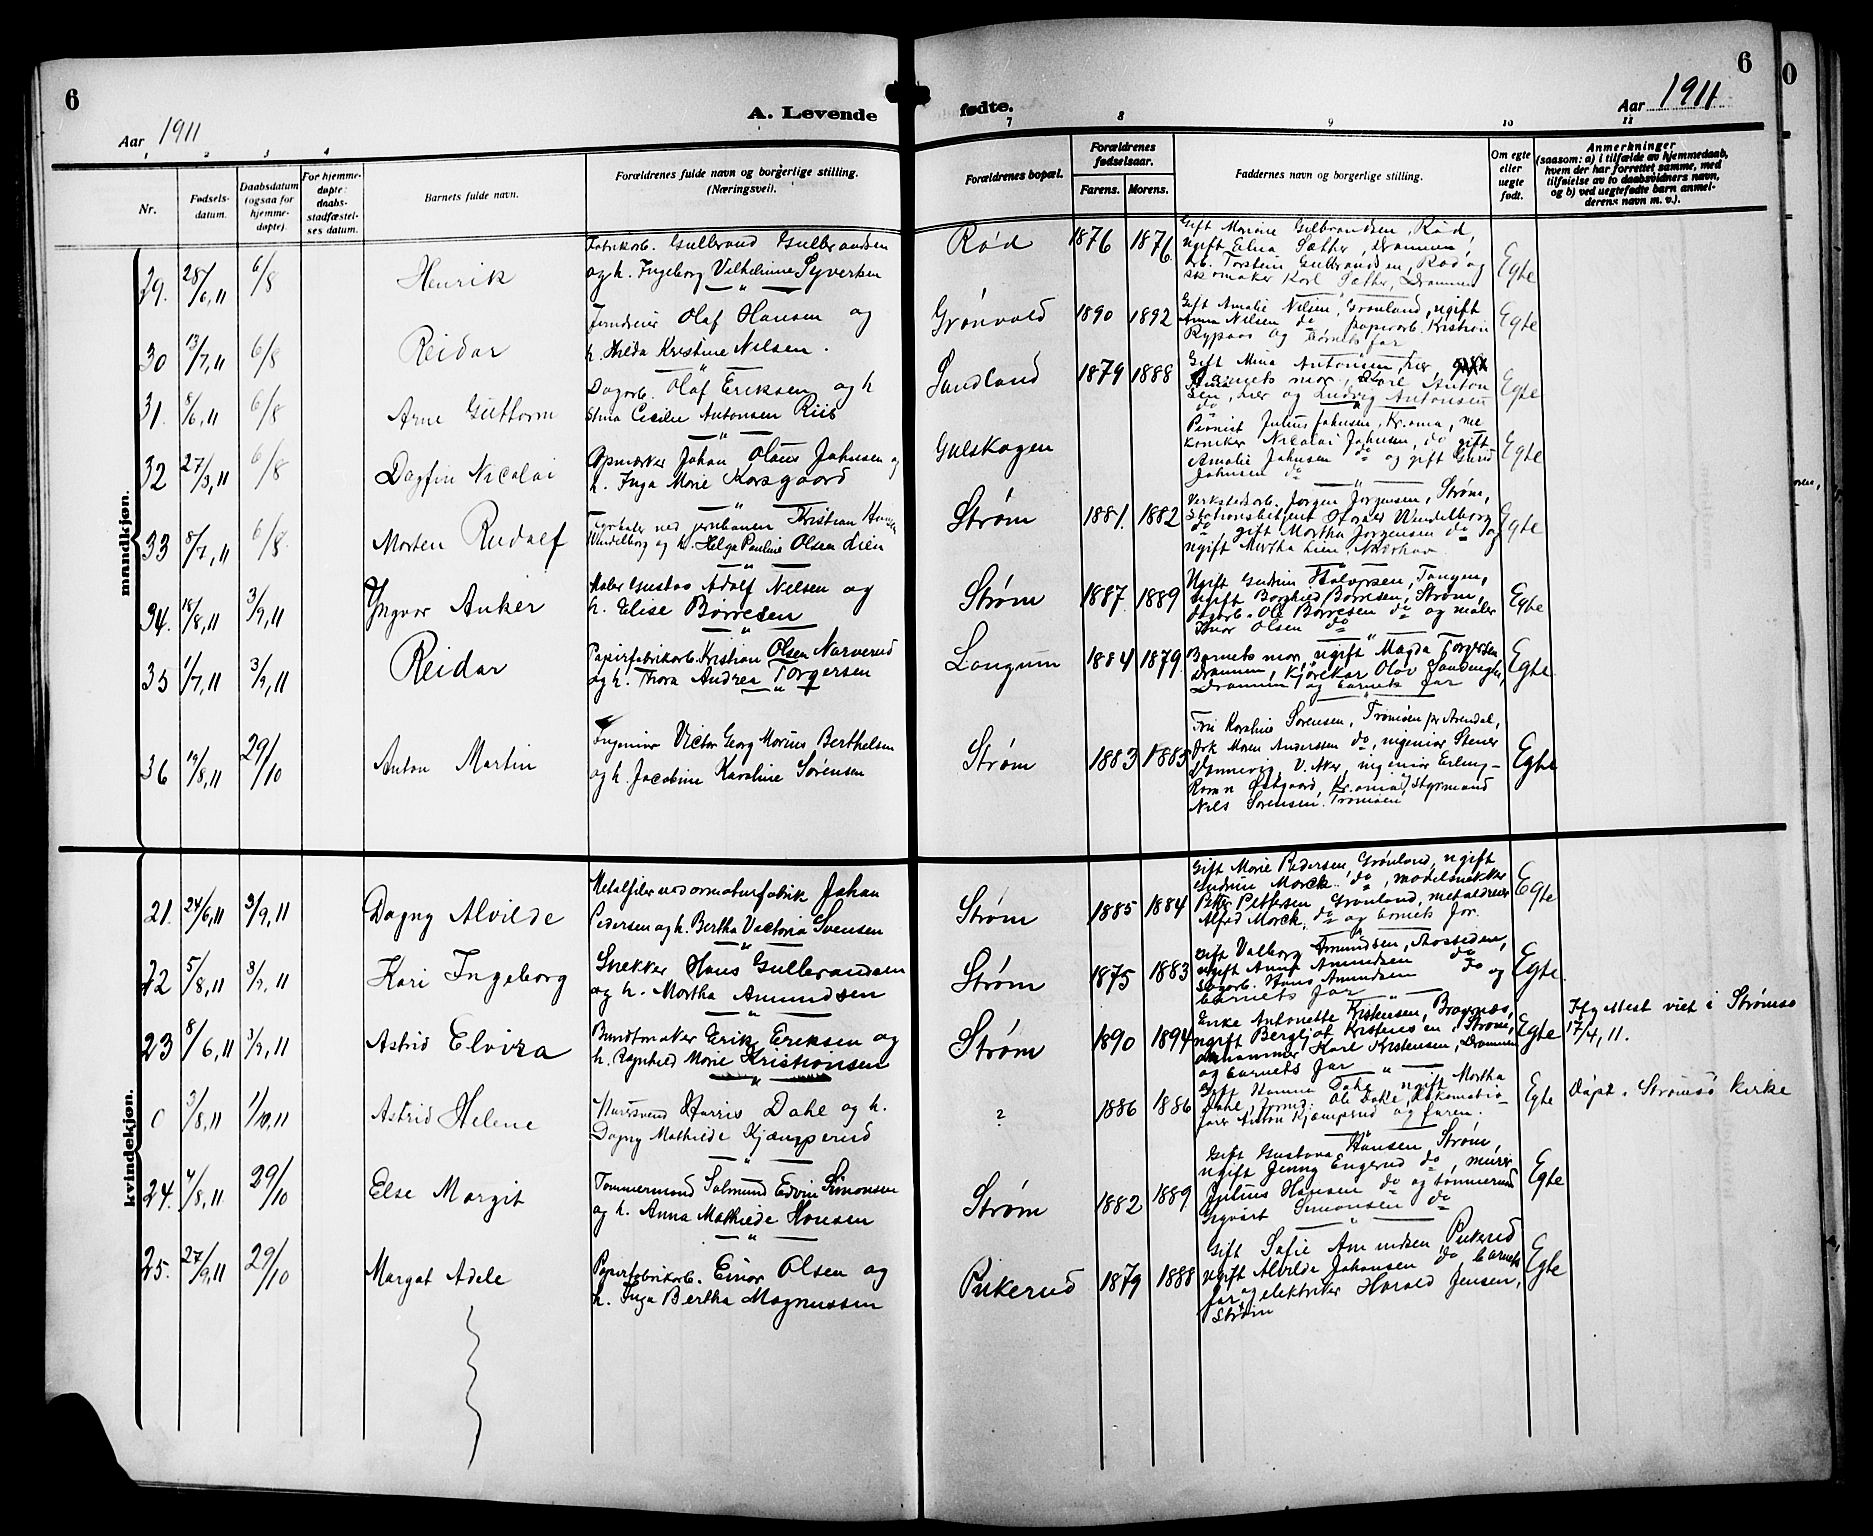 6
6
Aar 1911
A. Levende
fødte.
Aar 1911
1 2 3 4
7 8 9 10 11
Nr.
Fødsels-
datum.
Daabsdatum
(ogsaa for
hjemme-
døpte).
For hjemme-
døpte:
daabs-
stadfæstel-
ses datum.
Barnets fulde navn.
Forældrenes fulde navn og borgerlige stilling.
(Næringsvei).
Forældrenes bopæl.
Forældrenes
fødselsaar.
Farens. Morens.
Faddernes navn og borgerlige stilling.
Om egte
eller
uegte
født.
Anmerkninger
(saasom: a) i tilfælde av hjemmedaab,
hvem der har forrettet samme, med
tilføielse av to daabsvidners navn,
og b) ved uegtefødte barn anmel-
derens navn m. v.).
mandkjøn.
29. 28/6, 11 6/8 Henrik
Fabrikarb. Gulbrand Gulbrandsen
og h. Ingeborg Vilhelmine Syversen
Rød 1876 1876
Gift Marine Gulbrandsen, Rød,
ugift Elna Sæther, Drammen,
arb. Torstein Gulbrandsen, Rød og
skomaker Karl Sæther, Drammen
Egte
30 13/7, 11 6/8 Reidar
Jerndreier Olaf Hansen og
h. Hilda Kristine Nilsen.
Grønvold 1890 1892
Gift Amalie Nilsen, Grønland, ugift
Anna Nilsen do papirarb. Kristian
Rypaas og barnets far
Egte
31. 8/6, 11 6/8 Arne Guttorm
Dagarb. Olaf Eriksen og h
Stina Cecilie Antonsen Riis
Sundland 1879 1888
Gift Mina Antonsen, Lier,
barnets mor, Karl Anton
sen, Lier og Ludvig Antonsen
do
Egte
32 27/3, 11 6/8 Dagfin Nicolai
Opmerker Johan Olaus Johnsen og
h. Inga Marie Korsgaard
Gulskogen
Pianist Julius Johnsen, Kr.ania, me
kaniker Nicolai Johnsen, do gift
Amalie Johnsen do og gift Gurid
Johnsen do
Egte
33 8/7, 11 6/8. Morten Rudolf
Fyrbøter ved jernbanen Kristian Hansen
Wendelborg og h. Helga Pauline Olsen Lien
Strøm 1881. 1882
Verkstedarb. Jørgen Jørgensen, Strøm,
Stationsbitjent Wendelborg
do gift Martha Jørgensen do og
ugift Martha Lien,
Egte
34. 18/8, 11 3/9, 11 Yngvar Anker
Maler Gustav Adolf Nilsen og
h. Elise Børresen
Strøm 1887. 1889
Ugift Gudrun Halvorsen, Tangen,
ugift Borghild Børresen, Strøm,
dagarb. Ole Børresen do og maler
Thor Olsen do
Egte
35 1/7, 11 3/9, 11 Reidar
Papirfabrikarb. Kristian Olsen Narverud
og h. Thora Andrea Torgersen
Langum 1884 1879.
Barnets mor, ugift Magda Torgersen
Drammen, Kjørekar Olav
Drammen og barnets far
Egte
36 19/8, 11 29/10 Anton Martin
Ingeniør Victor Georg Marius Berthelsen
og h. Jacobine Karoline Sørensen
Strøm 1883 1885
Fru Karoline Sørensen, Tromøen pr Arendal,
frk Maren Anderssen do, ingeniør Stener
Dannevig, V. Aker, ingeniør Erling
Østgaard, Kr.ania, Styrmand
Nils Sørensen. Tromøen
Egte
kvindekjøn.
21. 24/6, 11 3/9, 11 Dagny Alvilde
Metalfiler ved armaturfabrik Johan
Pedersen og h. Bertha Victoria Svensen
Strøm 1885 1884
Gift Marie Pedersen, Grønland, ugift
Gudrun Marck. do, modelsnekker
Peter Pettersen, Grønland, metaldreier
Alfred Morck. do og barnets far.
Egte
22 5/8, 11 3/9, 11 Kari Ingeborg
Snekker Hans Gulbrandsen
og h. Martha Amundsen
Strøm 1875 1883
Gift Valborg Amundsen, Aassiden,
ugift Anna Amundsen do
dagarb. Hans Amundsen do og
barnets far
Egte
23 8/6, 11 3/9, 11 Astrid Elvira
Bundtmaker Erik Eriksen og
h. Ragnhild Marie Kristiansen
Strøm 1890 1894
Enke Antonette Kristensen, Bragernæs,
ugift Bergljot Kristensen, Strøm,
Karl Kristensen, Drammen
og barnets far
Egte
Ifg. attest viet i Strømsø
17/4, 11.
0 3/8, 11 1/10, 11 Astrid Helene
Harris Dahl og h.
Dagny Mathilde Kjæmperud
? 1886 1886
Gift Hanna Dahl, ugift Martha
Dahl, formd. Ole Dahl, Lokomotiv-
fører Anton Kjæmperud og faren.
Egte
Døpt i Strømsø kirke
24. 4/8, 11 29/10 Else Margit
Tømmermand Salmund Edvin Simonsen
og h. Anna Mathilde Hansen
Strøm 1882 1889
Gift Gustava Hansen, Strøm,
ugift Jenny Engerud do, murer
Julius Hansen do og tømmermd
Sigvart Simonsen do
Egte
25. 27/9, 11 29/10 Margot Adele
Papirfabrikarb. Einar Olsen og
h. Inga Bertha Magnussen
Pukerud 1879 1888
Gift Sofie Amundsen, Pukerud
ugift Alvilde Johansen do, barnets
far og elektriker Harald Jensen,
Strøm
Egte